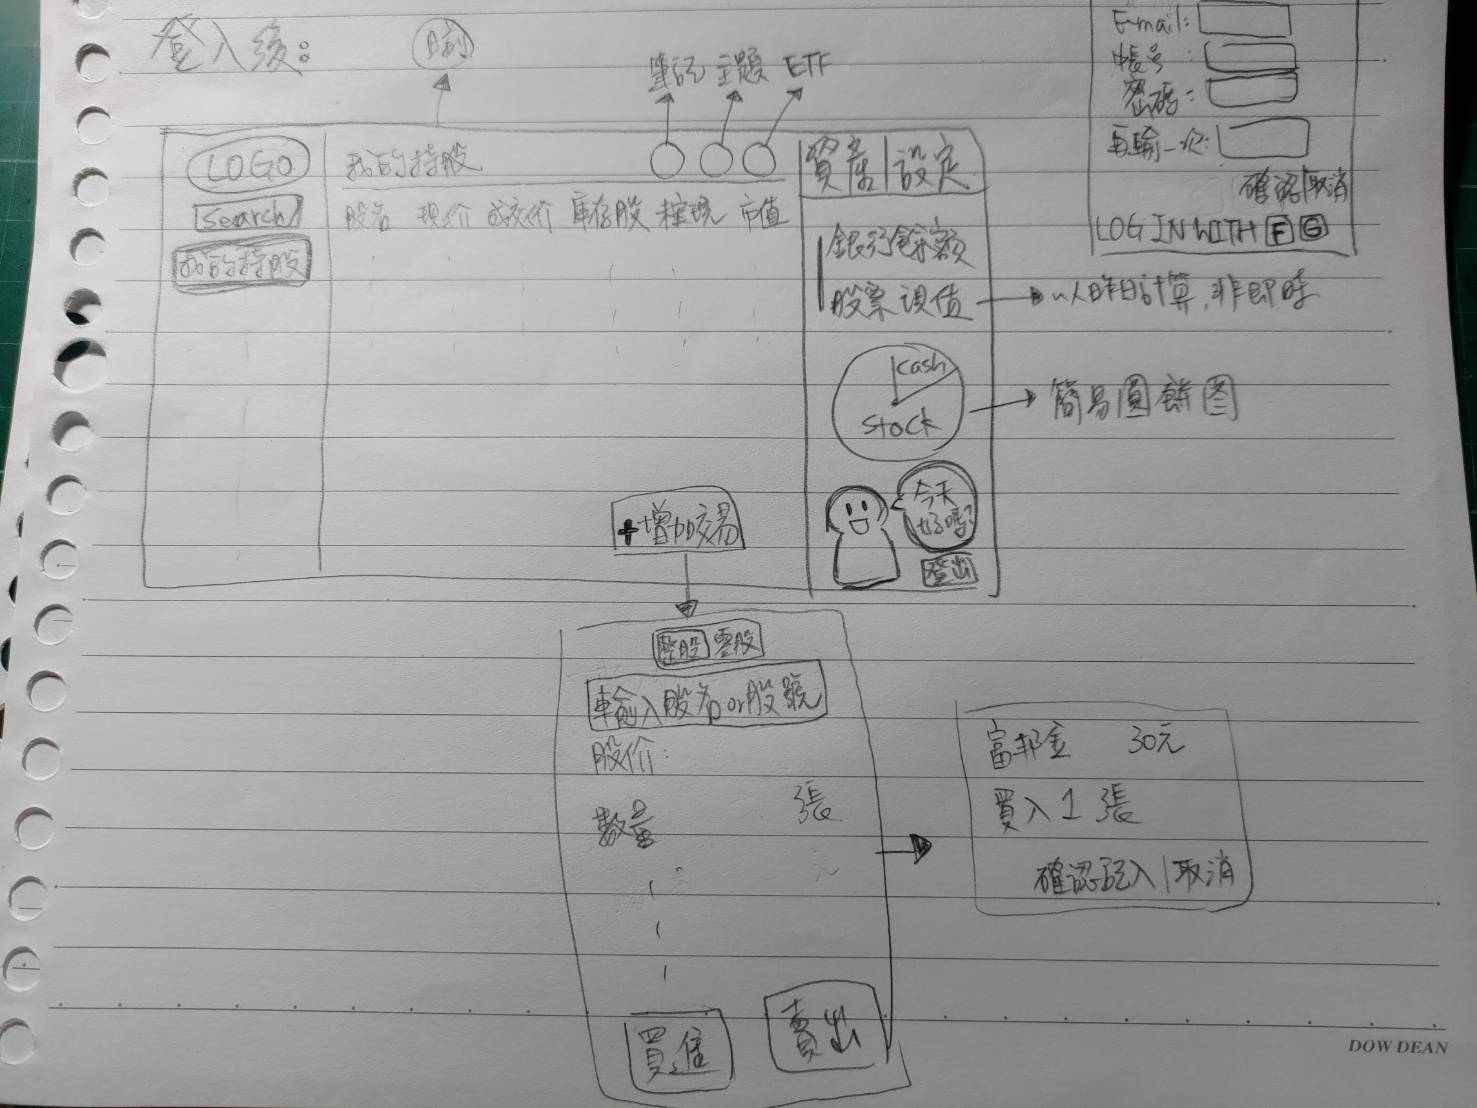 登入後：
E-mail:
帳号：
密碼：
再輸一次：
確認|取消
LOG IN WITH F G
筆記 主題 ETF
LOGO
我的持股
資產|設定
Search
股名 現价 成交价 庫存股 市值
我的持股
銀行餘額
股票現值
以昨日計算，非即時
cash
stock
簡易圓餅图
今天
好嗎?
登出
+增加交易
整股 零股
輸入股名or股號
股价：
數量 張
元
買進 賣出
富邦金 30元
買入1張
確認記入|取消
DOW DEAN